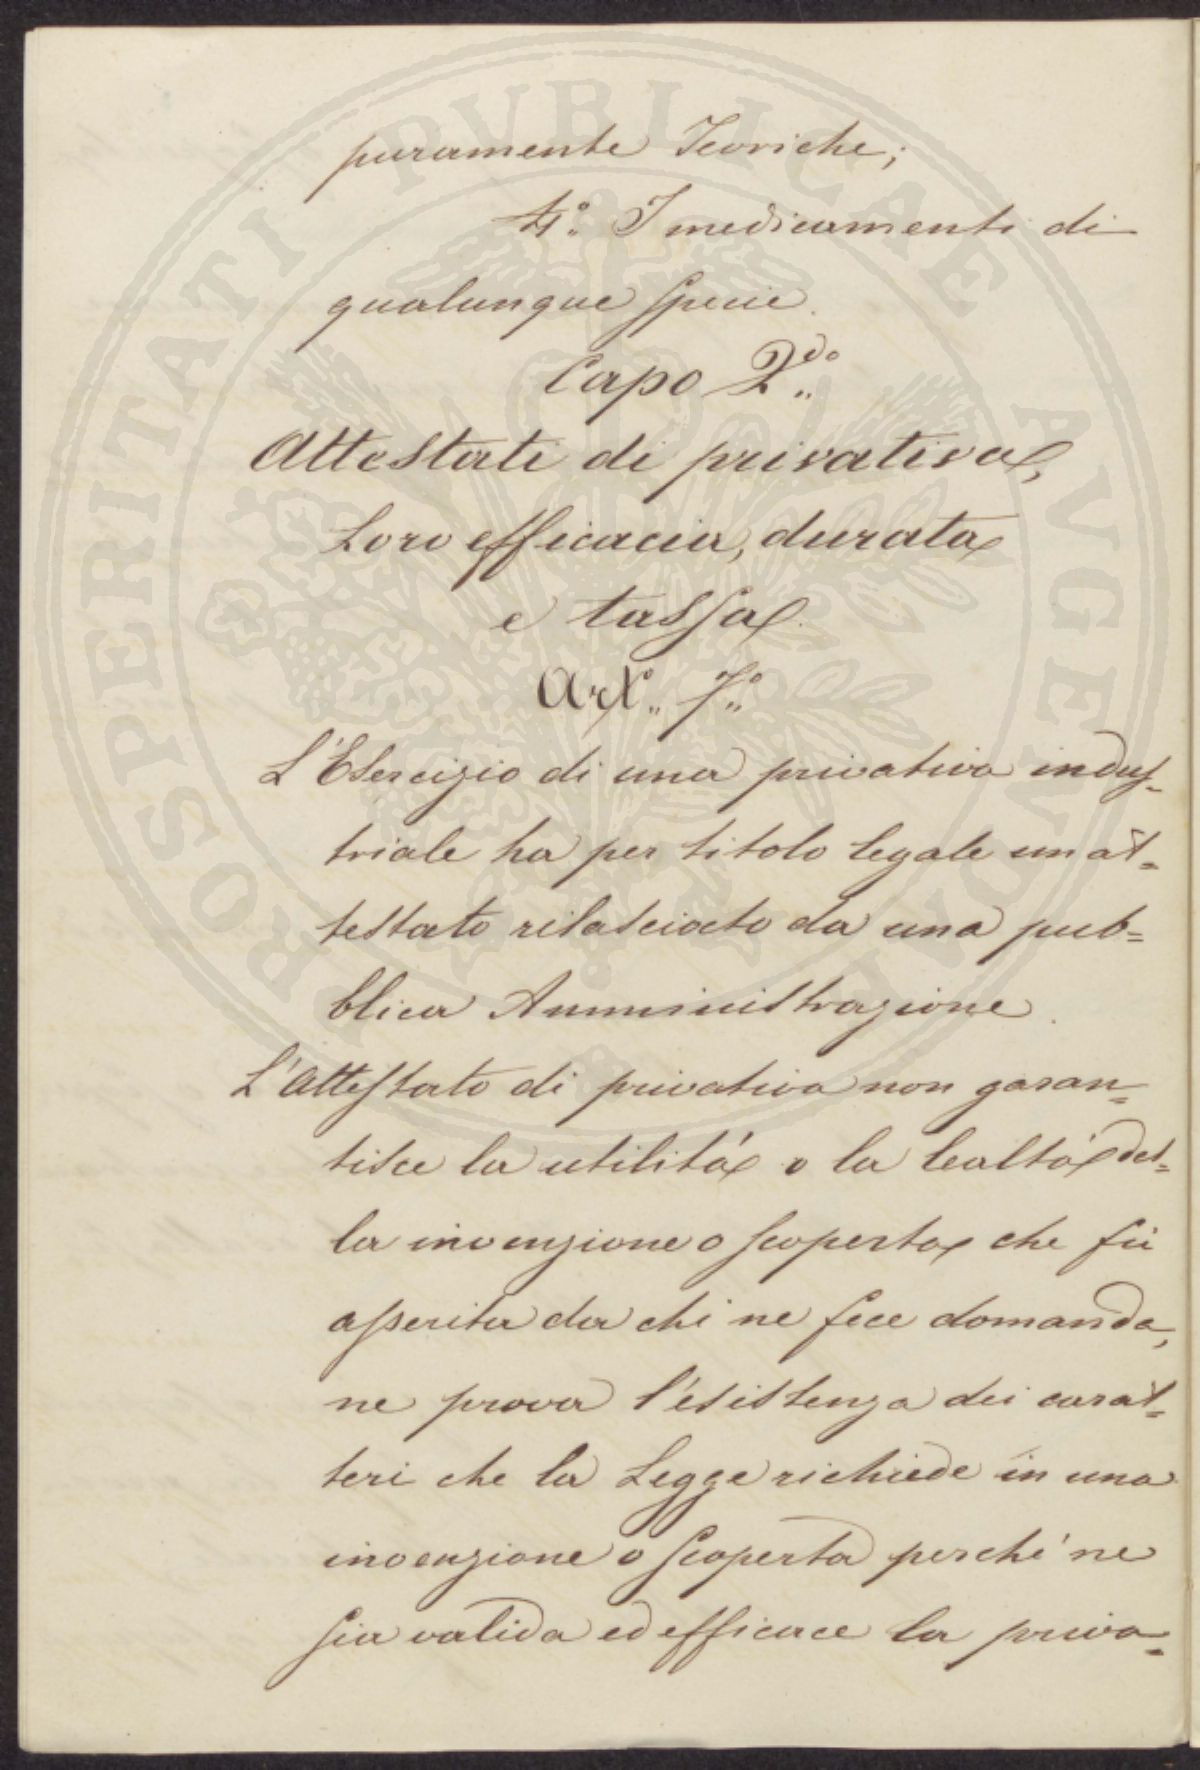 puramente Teoriche;
4.° I medicamenti di
qualunque specie.
Capo 2.do
Attestati di privativa,
Loro efficacia, durata
e tassa.
Art.° 7.°
L'Esercizio di una privativa indus=
triale ha per titolo legale un at=
testato rilasciato da una pub=
blica Amministrazione.
L'Attestato di privativa non garan=
tisce la utilità o la lealtà del=
la invenzione o scoperta che fù
asserita da chi ne fece domanda,
ne prova l'esistenza dei carat=
teri che la Legge richiede in una
invenzione o scoperta perché ne
sia valida ed efficace la priva=
PROSPERITATI PVBLICAE AVGENDAE